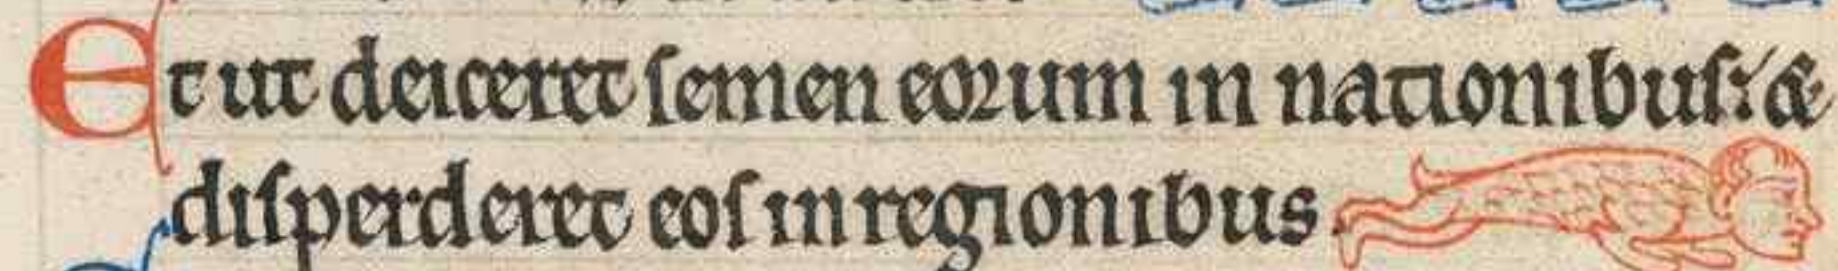 Et ut deiceret ſemen eoꝛum in nationibuſ: &
diſperderet eoſ in regionibus.